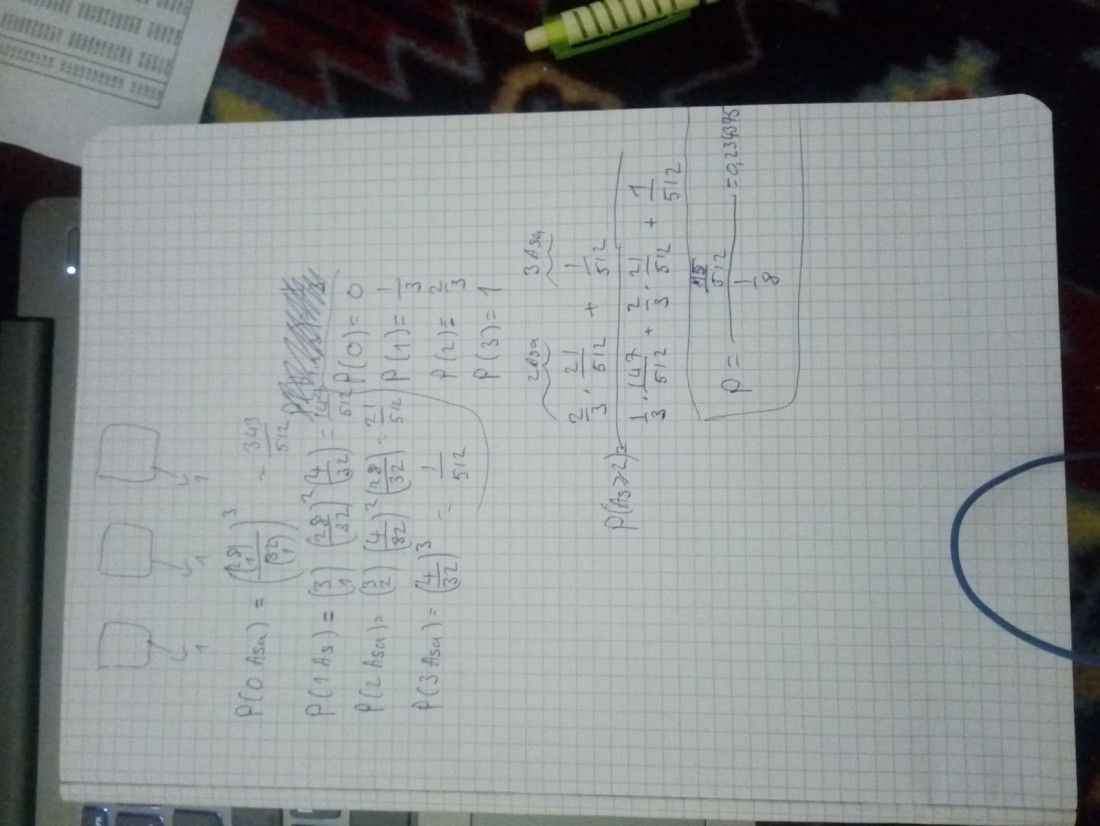 1 1 1
P(0 Asa) = (\frac{\binom{28}{1}}{\binom{32}{1}})^3 = \frac{343}{512}
P(1 As) = \binom{3}{1} (\frac{28}{32})^2 (\frac{4}{32}) = \frac{147}{512}
P(2 Asa) = \binom{3}{2} (\frac{4}{32})^2 (\frac{28}{32}) = \frac{21}{512}
P(3 Asa) = (\frac{4}{32})^3 = \frac{1}{512}
P(0) = 0
P(1) = \frac{1}{3}
P(2) = \frac{2}{3}
P(3) = 1
2 Asa 3 Asa
P(As≥2) = \frac{\frac{2}{3} · \frac{21}{512} + \frac{1}{512}}{\frac{1}{3} · \frac{147}{512} + \frac{2}{3} · \frac{21}{512} + \frac{1}{512}}
P = \frac{\frac{15}{512}}{\frac{1}{8}} = 0,234375